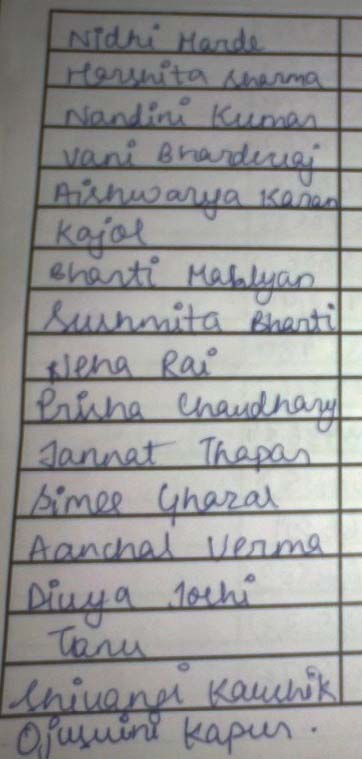 Nidhi Marde
Harshita Sharma
Nandini Kumar
Vani Bhardwaj
Aishwarya Karan
Kajol
Bharti Mahlyan
Sushmita Bharti
Neha Rai
Prisha Chaudhary
Jannat Thapar
Simee Ghazal
Aanchal Verma
Divya Joshi
Tanu
Shivangi Kaushik
Ojuswini Kapur.